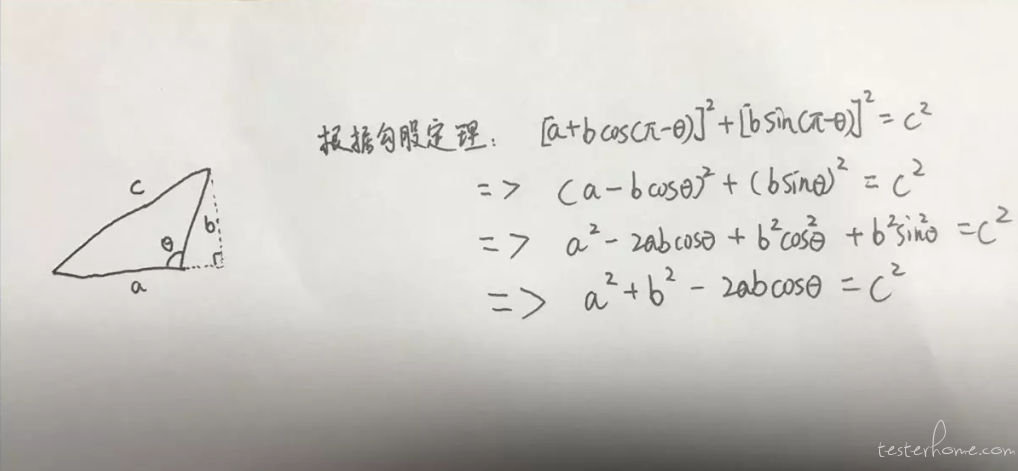 根据勾股定理： [a+bcos(π-θ)]²+[bsin(π-θ)]²=c²
=> (a-bcosθ)²+(bsinθ)²=c²
=> a²-2abcosθ+b²cos²θ+b²sin²θ=c²
=> a²+b²-2abcosθ=c²
c
θ
b
a
testerhome.com